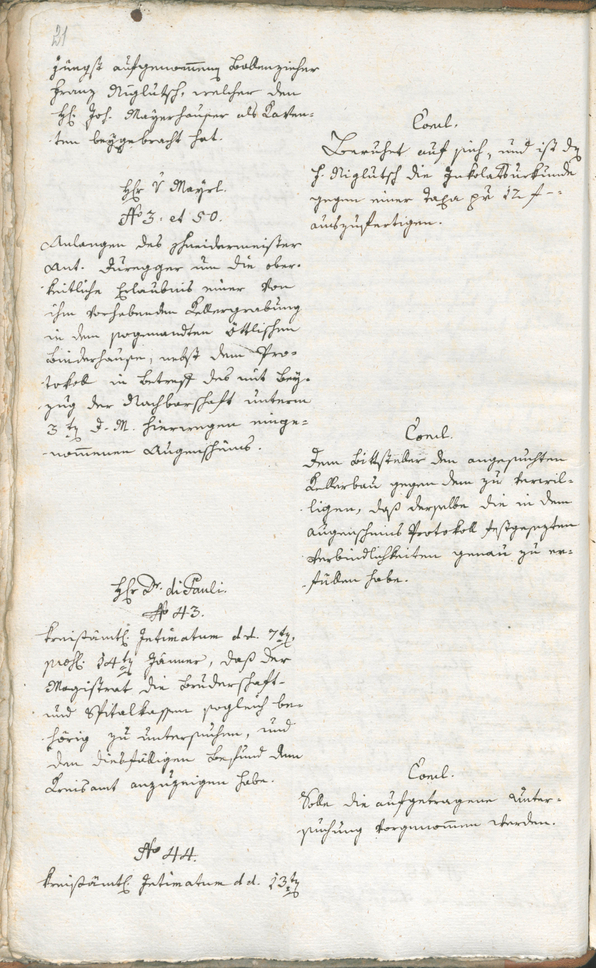 21
jüngst aufgenommene Bollenzieher
Franz Niglutsch, welcher den
H: Joh. Mayrhauser als Kaven-
ten beygebracht hat.
Concl.
Beruhet auf sich, und ist dem
H. Niglutsch die Inkolatsurkunde
gegen einer Taxa pr 12 f --
auszufertigen.
Hr v Mayrl.
No 3. et 50.
Anlangen des Schneidermeister
Ant. Duregger um die ober-
keitliche Erlaubnis einer von
ihm vorhabenden Kellergrabung
in dem sogenandten Öttlischen
Binderhause, nebst dem Pro-
tokoll in betreff des mit Bey-
zug der Nachbarschaft unterm
3ten d. M. hierwegen einge-
nommenen Augenscheins.
Concl.
Dem Bittsteller den angesuchten
Kellerbau gegen dem zu bewil-
ligen, daß derselbe die in dem
Augenscheins Protokoll festgesezten
Verbindlichkeiten genau zu er-
füllen habe.
Hr Dr. di Pauli.
No 43.
Kreisämtl. Intimatum dd. 7ten,
praes: 14ten Jänner, daß der
Magistrat die Bruderschaft-
und Spitalkassen sogleich be-
hörig zu untersuchen, und
den diesfälligen Befund dem
Kreisamt anzuzeigen habe.
Concl.
Solle die aufgetragene Unter-
suchung vorgenommen werden.
No 44.
Kreisämtl. Intimatum dd. 13ten